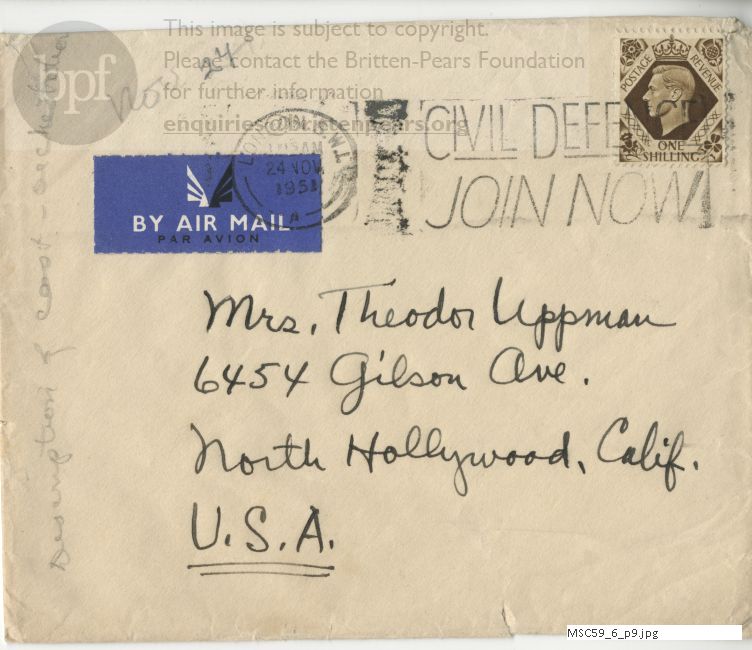 This image is subject to copyright.
Please contact the Britten-Pears Foundation
for further information
enquiries@brittenpears.org
bpf
Nov 24
POSTAGE REVENUE
ONE
SHILLING
LONDON
AM
24 NOV
1951
A
CIVIL DEFENCE
JOIN NOW
BY AIR MAIL
PAR AVION
Mrs. Theodor Uppman
6454 Gilson Ave.
North Hollywood, Calif.
U.S.A.
Description of cast - orchestration
MSC59_6_p9.jpg